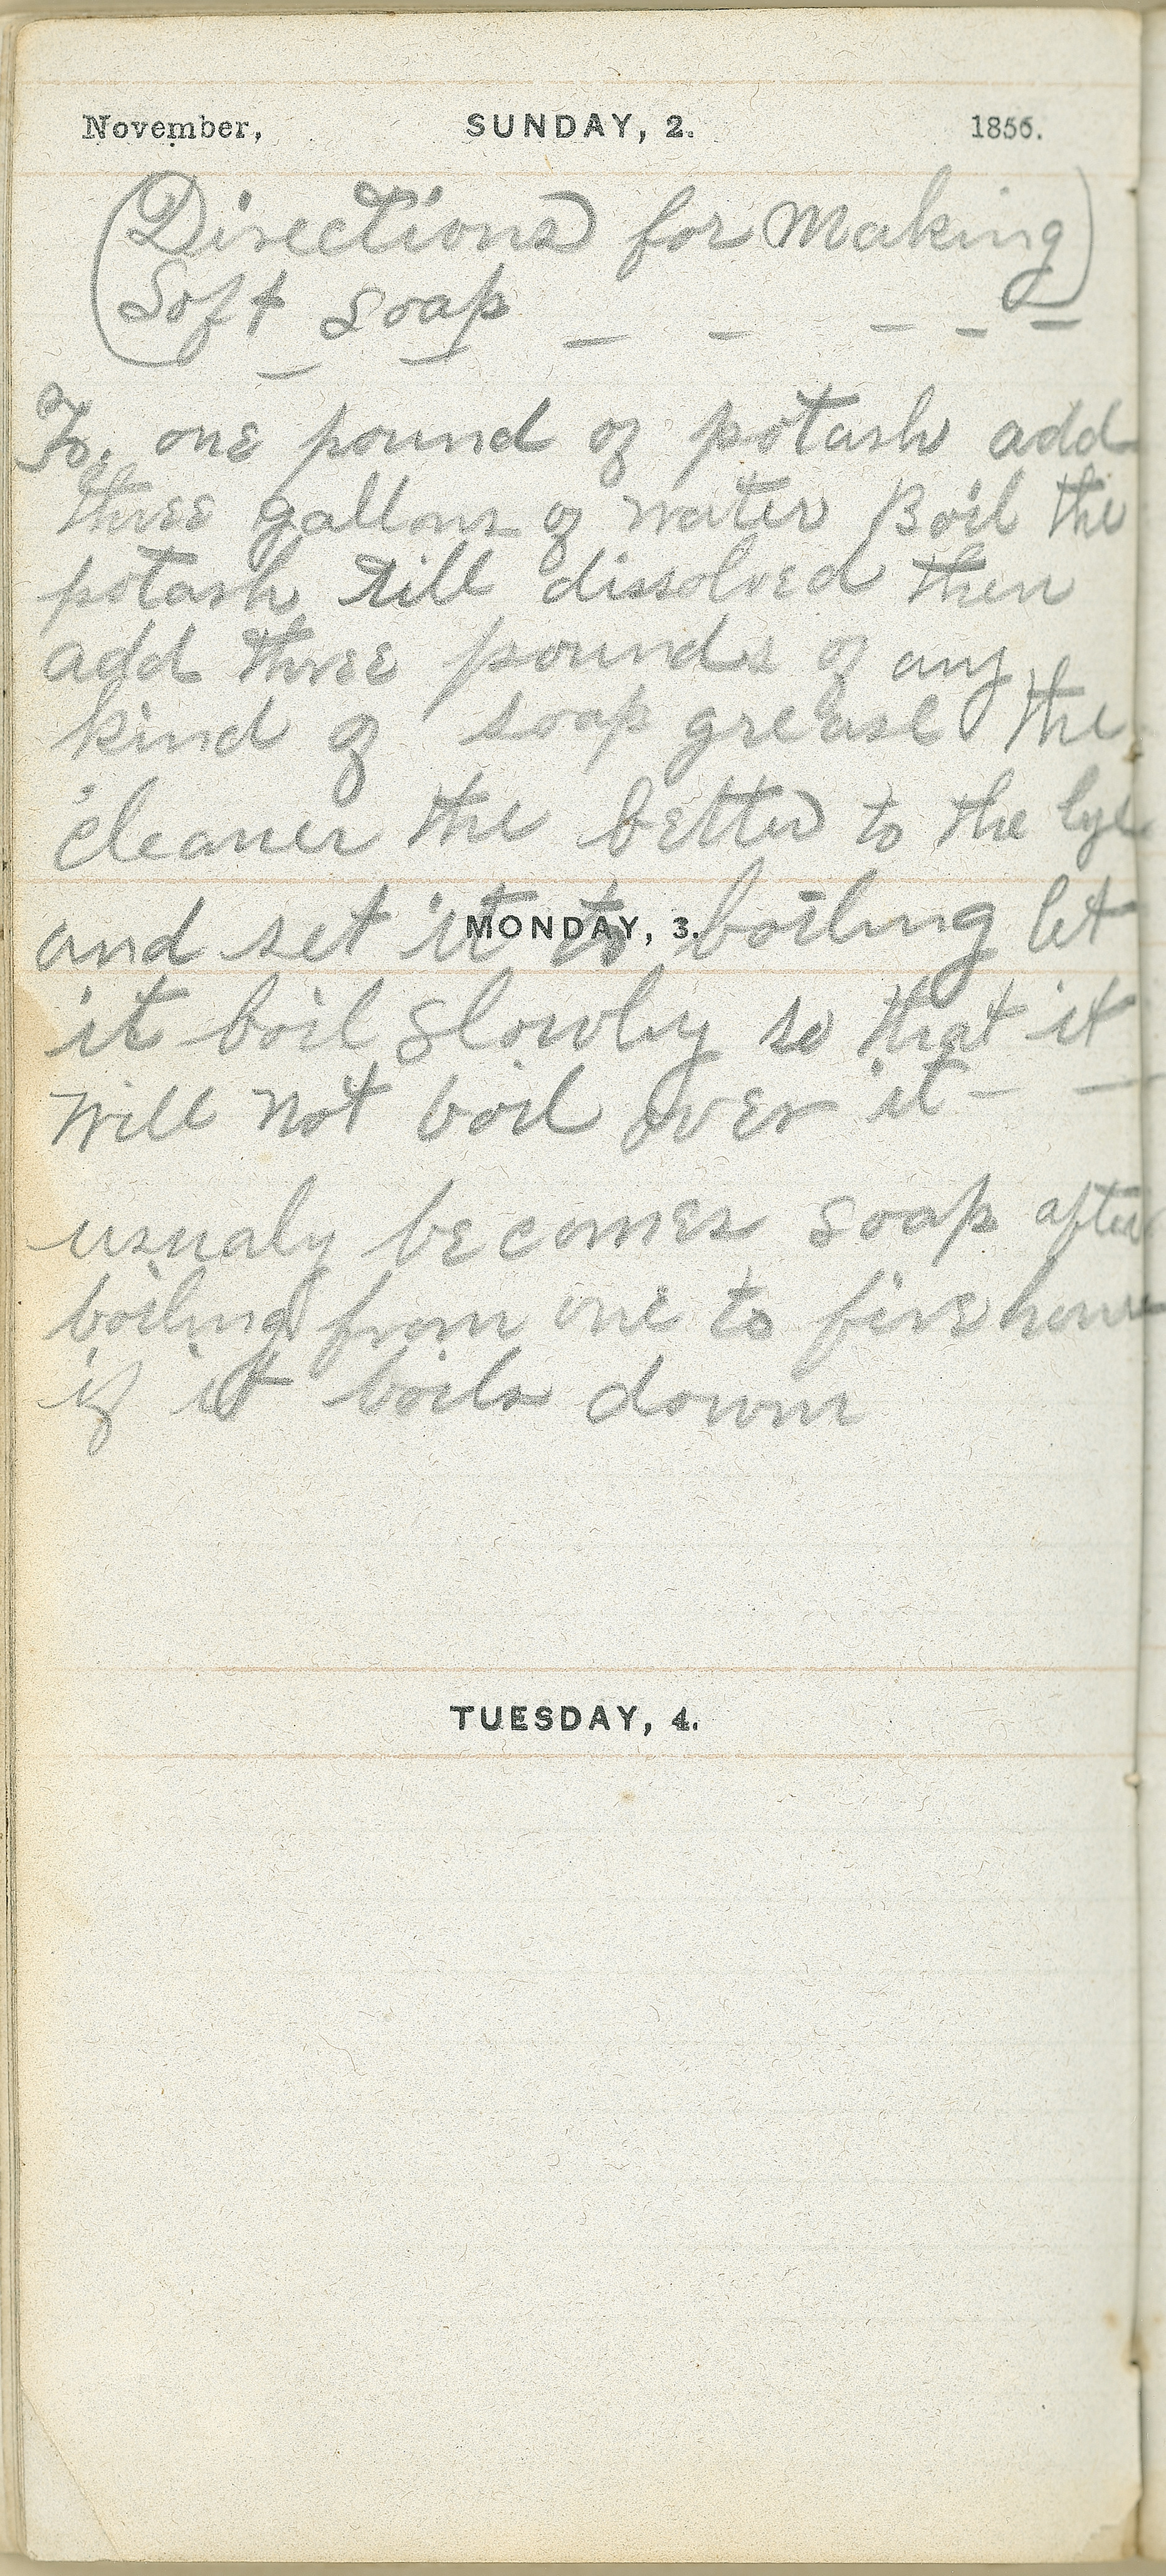 November, SUNDAY, 2. 1856.
(Directions for Making)
Soft Soap _ _ _ _ _
To one pound of potash add
three gallons of water Boil the
potash till dissolved then
add three pounds of any
kind of soap grease the
cleaner the better to the lye
MONDAY, 3.
and set it to boiling let
it boil Slowly so that it
will not boil over it _ _
usualy becomes soap after
boiling from one to five hours
if it boils down
TUESDAY, 4.